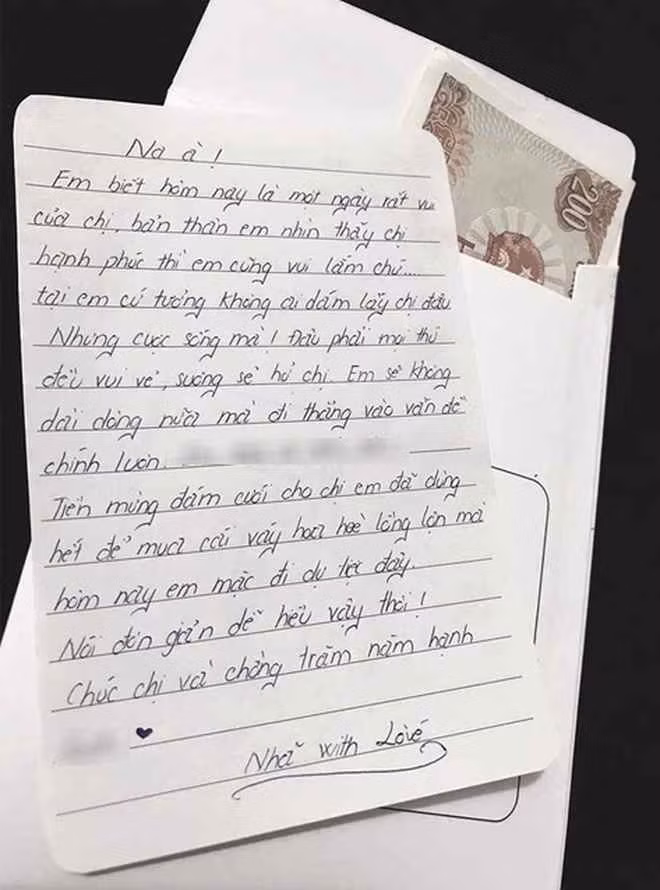 Na à!
Em biết hôm nay là một ngày rất vui
của chị, bản thân em nhìn thấy chị
hạnh phúc thì em cũng vui lắm chứ....
tại em cứ tưởng không ai dám lấy chị đâu
Nhưng cuộc sống mà! Đâu phải mọi thứ
đều vui vẻ, sướng sẽ hả chị. Em sẽ không
dài dòng nữa mà đi thẳng vào vấn đề
chính luôn.
Tiền mừng đám cưới cho chị em đã dùng
hết để mua cái váy hoa hoè lồng lộn mà
hôm nay em mặc đi dự tiệc đấy.
Nói đơn giản dễ hểu vậy thôi!
Chúc chị và chồng trăm năm hạnh
Nhã with Love
200